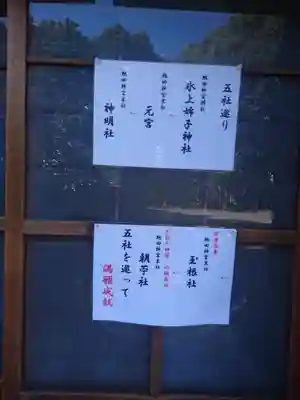 五社巡り
熱田神宮摂社
氷上姉子神社
熱田神宮末社
元宮
熱田神宮末社
神明社
熱田神宮末社
玉根社
熱田神宮末社
朝苧社
五社を巡って
満願成就